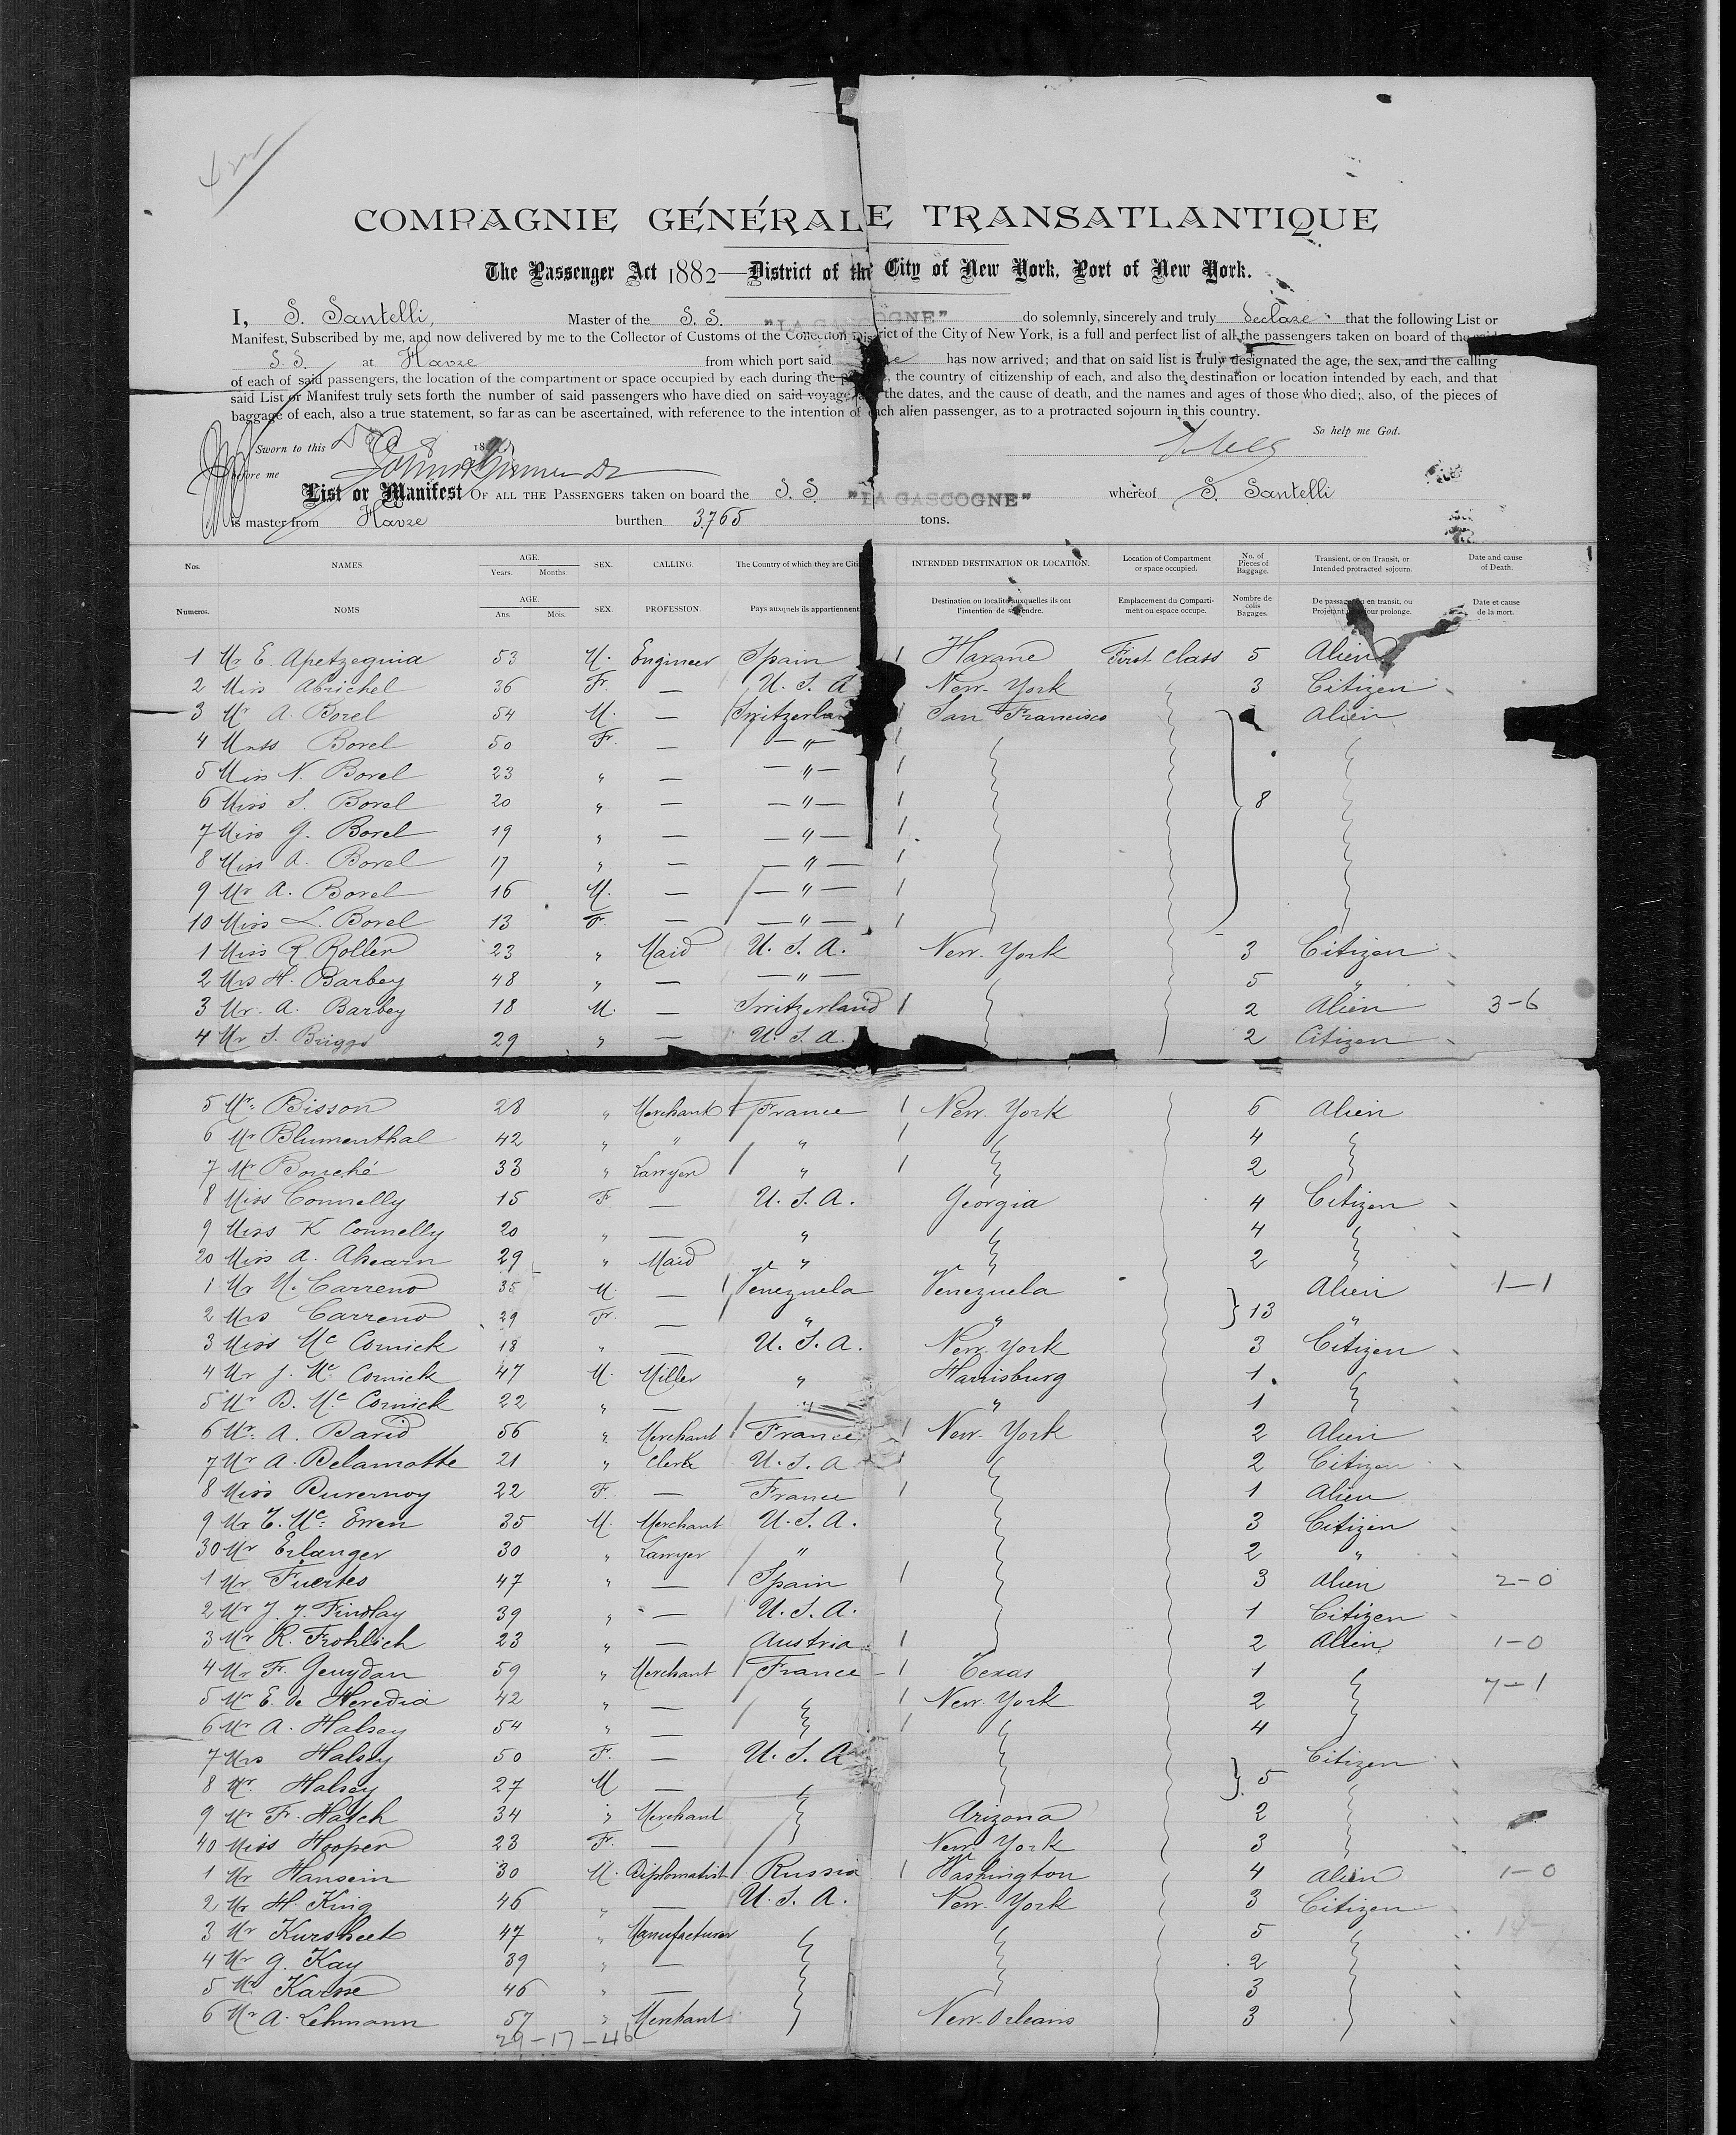 COMPAGNIE GÉNÉRALE TRANSATLANTIQUE
The Passenger Act 1882—District of the City of New York, Port of New York.
I, S. Santelli, Master of the S. S. "LA GASCOGNE" do solemnly, sincerely and truly declare that the following List or
Manifest, Subscribed by me, and now delivered by me to the Collector of Customs of the Collection District of the City of New York, is a full and perfect list of all the passengers taken on board of the said
S. S. at Havre from which port said has now arrived; and that on said list is truly designated the age, the sex, and the calling
of each of said passengers, the location of the compartment or space occupied by each during the , the country of citizenship of each, and also the destination or location intended by each, and that
said List or Manifest truly sets forth the number of said passengers who have died on said voyage, the dates, and the cause of death, and the names and ages of those who died; also, of the pieces of
baggage of each, also a true statement, so far as can be ascertained, with reference to the intention of each alien passenger, as to a protracted sojourn in this country.
So help me God.
Sworn to this 8 18
before me
List or Manifest OF ALL THE PASSENGERS taken on board the S. S. "LA GASCOGNE" whereof S. Santelli
is master from Havre burthen 3765 tons.
Nos. NAMES. AGE. Years. Months SEX. CALLING. The Country of which they are Citi INTENDED DESTINATION OR LOCATION. Location of Compartment or space occupied. No. of Pieces of Baggage. Transient, or on Transit, or Intended protracted sojourn. Date and cause of Death.
Numeros. NOMS AGE. Ans. Mois. SEX. PROFESSION. Pays auxquels ils appartiennent Destination ou localite auxquelles ils ont l'intention de se rendre. Emplacement du Comparti-ment ou espace occupe. Nombre de colis Bagages. De passage ou en transit, ou Projetant sejour prolonge. Date et cause de la mort.
1 Mr E. Apetzeguia 53 M. Engineer Spain Havane First Class 5 Alien
2 Miss Abrichel 36 Fr. — U. S. A New-York 3 Citizen
3 Mr A. Borel 54 M. — Switzerland San Francisco Alien
4 Mrss Borel 50 Fr. — — " —
5 Miss N. Borel 23 " — — " —
6 Miss S. Borel 20 " — — " — 8
7 Miss G. Borel 19 " — — " —
8 Miss A. Borel 17 " — — " —
9 Mr A. Borel 16 M. — — " —
10 Miss L. Borel 13 F. — — " —
1 Miss R. Roller 23 " Maid U. S. A. New-York 3 Citizen
2 Mrs H. Barbey 48 " — — " — 5 "
3 Mr. A. Barbey 18 M. — Switzerland 2 Alien 3-6
4 Mr S. Briggs 29 " — U. S. A. 2 Citizen
5 Mr. Bisson 28 " Merchant France New-York 6 Alien
6 Mr Blumenthal 42 " " " 4
7 Mr Bouché 33 " Lawyer " 2
8 Miss Connelly 15 F — U. S. A. Georgia 4 Citizen
9 Miss K Connelly 20 " — " 4
20 Miss A. Ahearn 29 " Maid " 2
1 Mr M. Carreno 35 M. — Venezuela Venezuela Alien 1-1
2 Mrs Carreno 29 Fr. — " " 13 "
3 Miss Mc Cormick 18 " — U. S. A. New-York 3 Citizen
4 Mr J. Mc Cormick 47 M. Miller " Harrisburg 1
5 Mr D. Mc Cormick 22 " — " " 1
6 Mr. A. David 56 " Merchant France New-York 2 Alien
7 Mr A. Delamotte 21 " Clerk U. S. A 2 Citizen
8 Miss Duvernoy 22 F. — France 1 Alien
9 Mr T. Mc Ewen 35 M. Merchant U. S. A. 3 Citizen
30 Mr Erlanger 30 " Lawyer " 2 "
1 Mr Fuertes 47 " — Spain 3 Alien 2-0
2 Mr J. J. Findlay 39 " — U. S. A. 1 Citizen
3 Mr R. Frohlich 23 " — Austria 2 Alien 1-0
4 Mr F. Gueydan 59 " Merchant France Texas 1
5 Mr E. de Heredia 42 " — New-York 2 7-1
6 Mr A. Halsey 54 " — 4
7 Mrs Halsey 50 F. — U. S. A Citizen
8 Mr. Halsey 27 M — 5
9 Mr F. Hatch 34 " Merchant Arizona 2
40 Miss Hooper 23 F. — New-York 3
1 Mr Hansein 30 M. Diplomatist Russia Washington 4 Alien 1-0
2 Mr H. King 46 " — U. S. A. New-York 3 Citizen
3 Mr Kursheet 47 " Manufacturer 5
4 Mr G. Kay 39 " — 2
5 Mr Karne 46 " — 3
6 Mr A. Lehmann 57 " Merchant New-Orleans 3
29-17-46